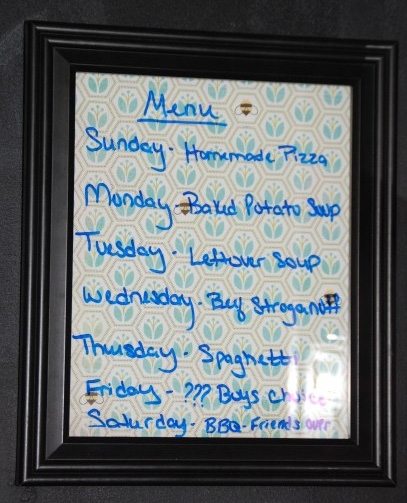 Menu
Sunday - Homemade Pizza
Monday - Baked Potato Soup
Tuesday - Leftover Soup
Wednesday - Beef Stroganoff
Thursday - Spaghetti
Friday - ??? Boys Choice
Saturday - BBQ - Friends over